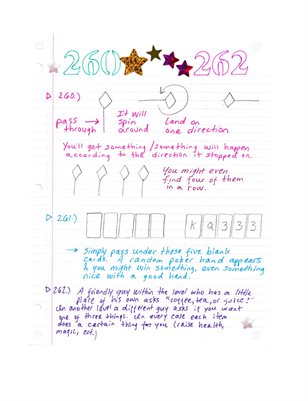 260 262
260.)
pass through
It will spin around
Land on one direction
You'll get something / something will happen
according to the direction it stopped on.
You might even
find four of them
in a row.
261.)
K Q 3 3 3
→ Simply pass under these five blank
cards. A random poker hand appears
& you might win something, even something
nice with a good hand.
262.) A friendly guy within the level who has a little
place of his own asks "coffee, tea, or juice!"
In another level a different guy asks if you want
one of three things. In every case each item
does a certain thing for you (raise health,
magic, ect.)